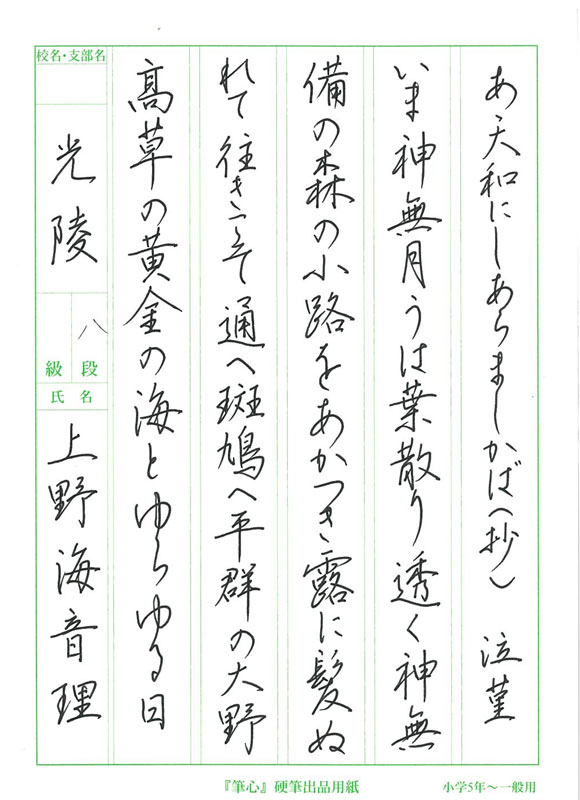 あゝ大和にしあらましかば(抄) 泣菫
いま神無月うは葉散り透く神無
備の森の小路をあかつき露に髪ぬ
れて往きこそ通へ斑鳩へ平群の大野
髙草の黄金の海とゆらゆる日
校名・支部名
光陵
八
段
級
氏名
上野海音理
『筆心』硬筆出品用紙
小学5年~一般用